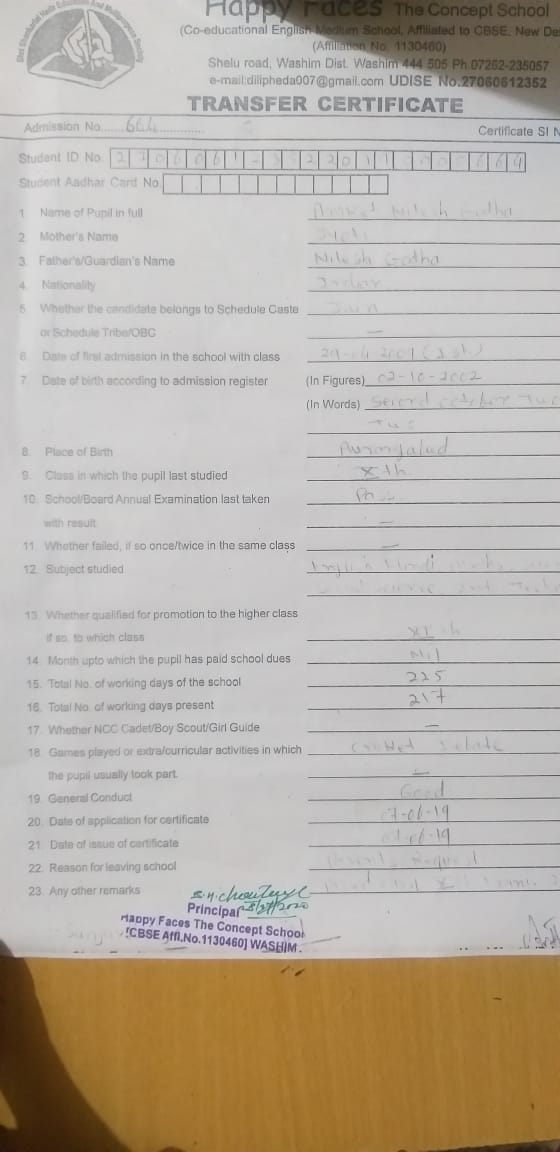 Happy Faces The Concept School
(Co-educational English Medium School, Affiliated to CBSE, New De
(Affiliation No. 1130460)
Shelu road, Washim Dist. Washim 444 505 Ph.07252-235057
e-mail:dilipheda007@gmail.com UDISE No.27060612352
TRANSFER CERTIFICATE
Admission No. 664
Certificate Sl N
Student ID No.
Student Aadhar Card No.
1. Name of Pupil in full
2. Mother's Name
3. Father's/Guardian's Name Nilesh Godha
4. Nationality Indian
5. Whether the candidate belongs to Schedule Caste Jain
or Schedule Tribe/OBC —
6. Date of first admission in the school with class
7. Date of birth according to admission register (In Figures) 02-10-2002
(In Words) Second october Two
Two
8. Place of Birth Aurangabad
9. Class in which the pupil last studied Xth
10. School/Board Annual Examination last taken
with result —
11. Whether failed, if so once/twice in the same class —
12. Subject studied English Hindi
13. Whether qualified for promotion to the higher class
if so, to which class XIth
14. Month upto which the pupil has paid school dues Nil
15. Total No. of working days of the school 225
16. Total No. of working days present 217
17. Whether NCC Cadet/Boy Scout/Girl Guide —
18. Games played or extra/curricular activities in which
the pupil usually took part. —
19. General Conduct Good
20. Date of application for certificate 07-06-19
21. Date of issue of certificate 07-06-19
22. Reason for leaving school
23. Any other remarks
Principal
Happy Faces The Concept School
[CBSE Affl.No.1130460] WASHIM.